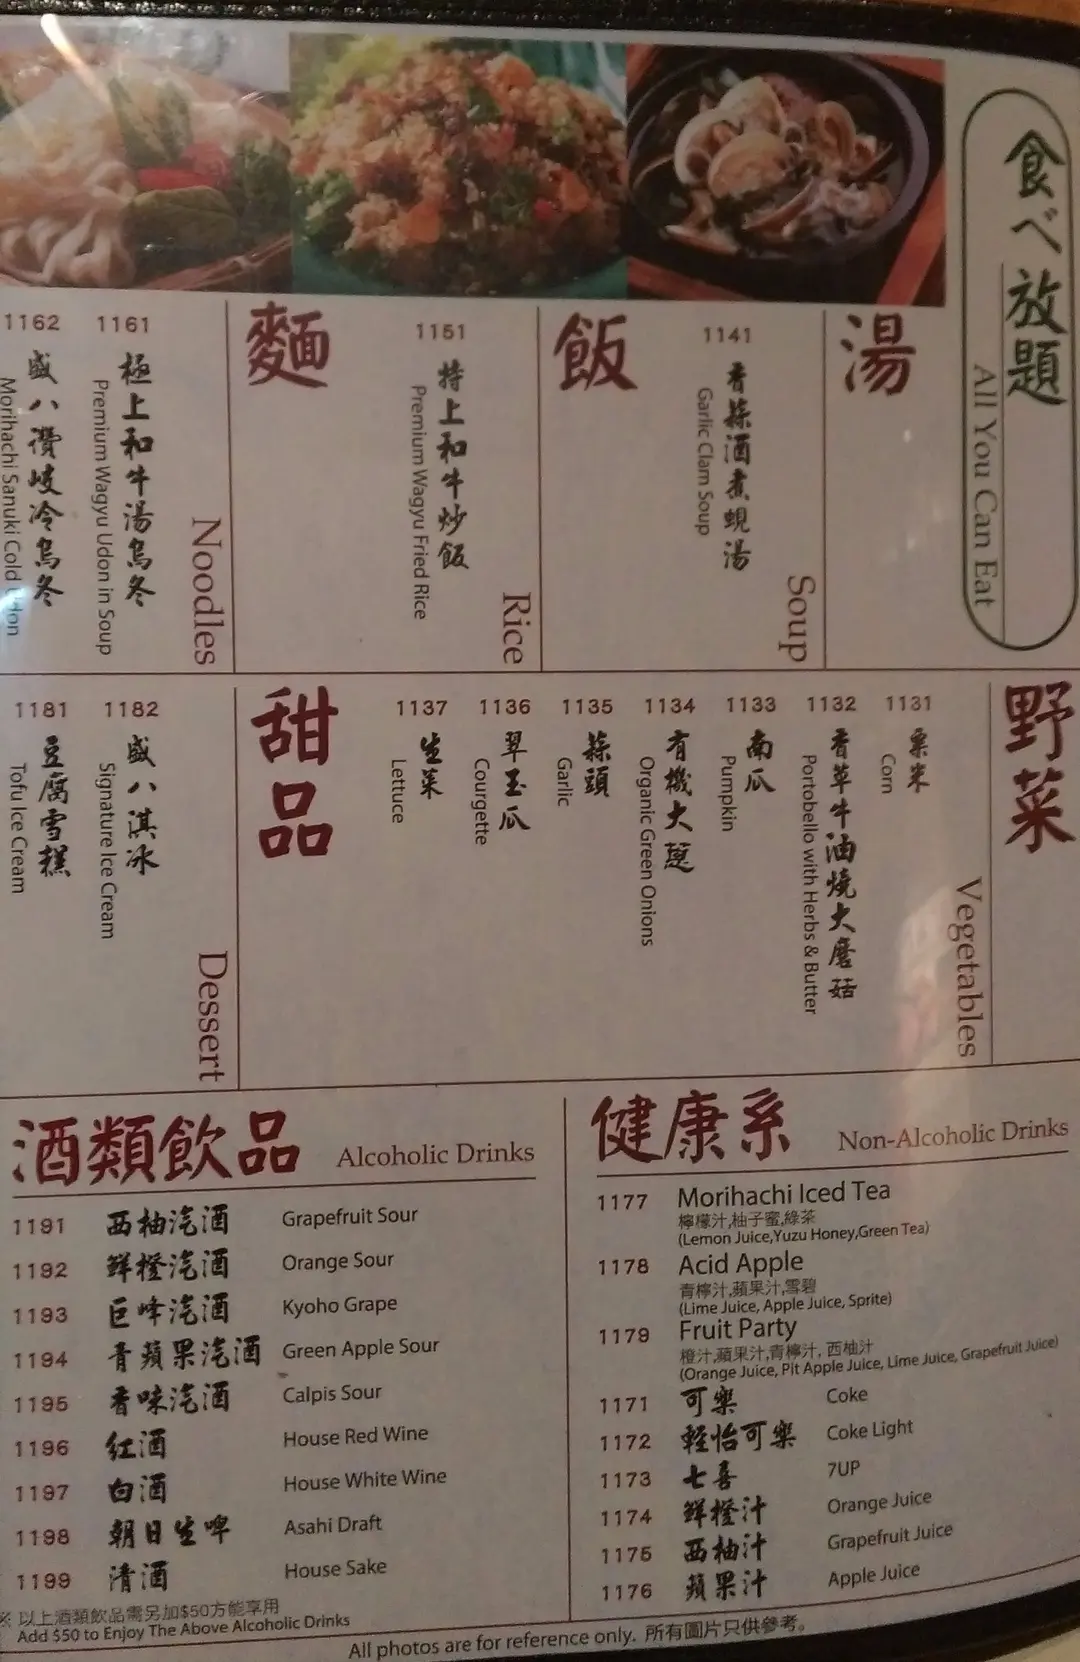 食べ放題
All You Can Eat
湯
Soup
1141
香蒜酒煮蜆湯
Garlic Clam Soup
飯
Rice
1151
特上和牛炒飯
Premium Wagyu Fried Rice
麵
Noodles
1161
極上和牛湯烏冬
Premium Wagyu Udon in Soup
1162
盛八讚岐冷烏冬
Morihachi Sanuki Cold Udon
野菜
Vegetables
1131
粟米
Corn
1132
香草牛油燒大磨菇
Portobello with Herbs & Butter
1133
南瓜
Pumpkin
1134
有機大蔥
Organic Green Onions
1135
蒜頭
Garlic
1136
翠玉瓜
Courgette
1137
生菜
Lettuce
甜品
Dessert
1182
盛八淇冰
Signature Ice Cream
1181
豆腐雪糕
Tofu Ice Cream
酒類飲品 Alcoholic Drinks
1191 西柚汽酒 Grapefruit Sour
1192 鮮橙汽酒 Orange Sour
1193 巨峰汽酒 Kyoho Grape
1194 青蘋果汽酒 Green Apple Sour
1195 香味汽酒 Calpis Sour
1196 紅酒 House Red Wine
1197 白酒 House White Wine
1198 朝日生啤 Asahi Draft
1199 清酒 House Sake
※ 以上酒類飲品需另加$50方能享用
Add $50 to Enjoy The Above Alcoholic Drinks
健康系 Non-Alcoholic Drinks
1177 Morihachi Iced Tea
檸檬汁,柚子蜜,綠茶
(Lemon Juice,Yuzu Honey,Green Tea)
1178 Acid Apple
青檸汁,蘋果汁,雪碧
(Lime Juice, Apple Juice, Sprite)
1179 Fruit Party
橙汁,蘋果汁,青檸汁, 西柚汁
(Orange Juice, Pit Apple Juice, Lime Juice, Grapefruit Juice)
1171 可樂 Coke
1172 輕怡可樂 Coke Light
1173 七喜 7UP
1174 鮮橙汁 Orange Juice
1175 西柚汁 Grapefruit Juice
1176 蘋果汁 Apple Juice
All photos are for reference only. 所有圖片只供參考。